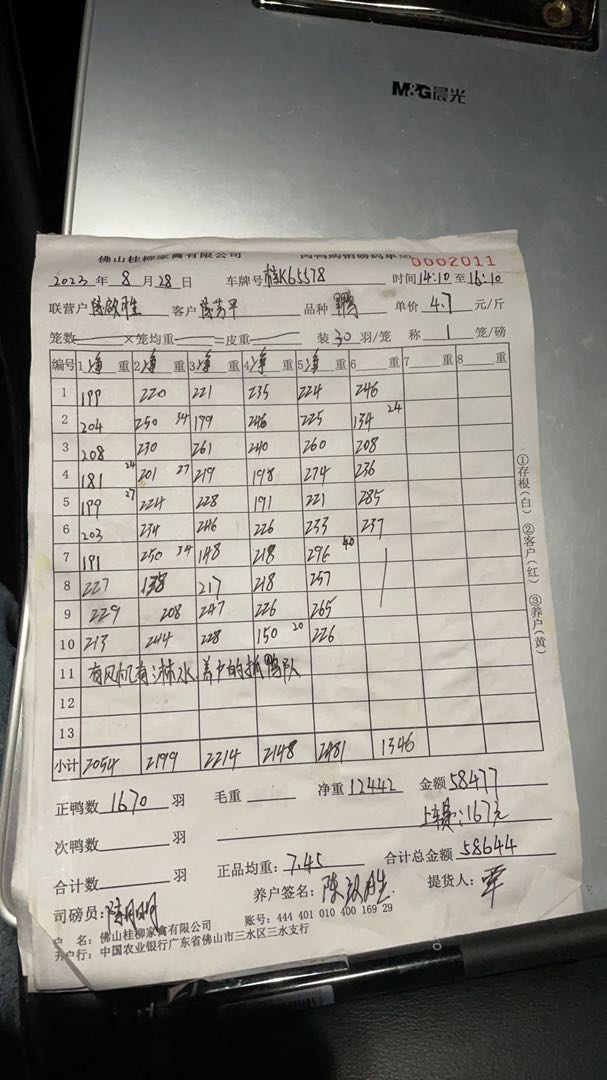 M&G晨光
佛山桂柳家禽有限公司 肉鸭购销磅码单 0002011
2023 年 8 月 28 日 车牌号 桂K65578 时间 14:10 至 16:10
联营户 陈啟胜 客户 品种 鸭 单价 4.7 元/斤
笼数 ×笼均重 =皮重 装 30 羽/笼 称 1 笼/磅
编号 1 净 重 2 净 重 3 净 重 4 净 重 5 净 重 6 重 7 重 8 重
1 199 220 221 235 224 246
2 204 250 34 199 246 225 134 24
3 208 230 261 240 260 208
4 181 24 201 27 219 198 274 236
5 199 27 224 228 191 221 285
6 203 234 246 226 233 237
7 191 250 34 148 218 296 40
8 227 138 217 218 257
9 229 208 247 226 265
10 213 244 228 150 20 226
11 有风机有淋水 养户的抓鸭队
12
13
小计 2054 2199 2214 2148 2481 1346
正鸭数 1670 羽 毛重 净重 12442 金额 58477
上车费:167元
次鸭数 羽
合计数 羽 正品均重: 7.45 合计总金额 58644
司磅员: 养户签名: 陈啟胜 提货人: 覃
户 名: 佛山桂柳家禽有限公司 账号: 444 401 010 400 169 29
开户行: 中国农业银行广东省佛山市三水区三水支行
①存根(白) ②客户(红) ③养户(黄)